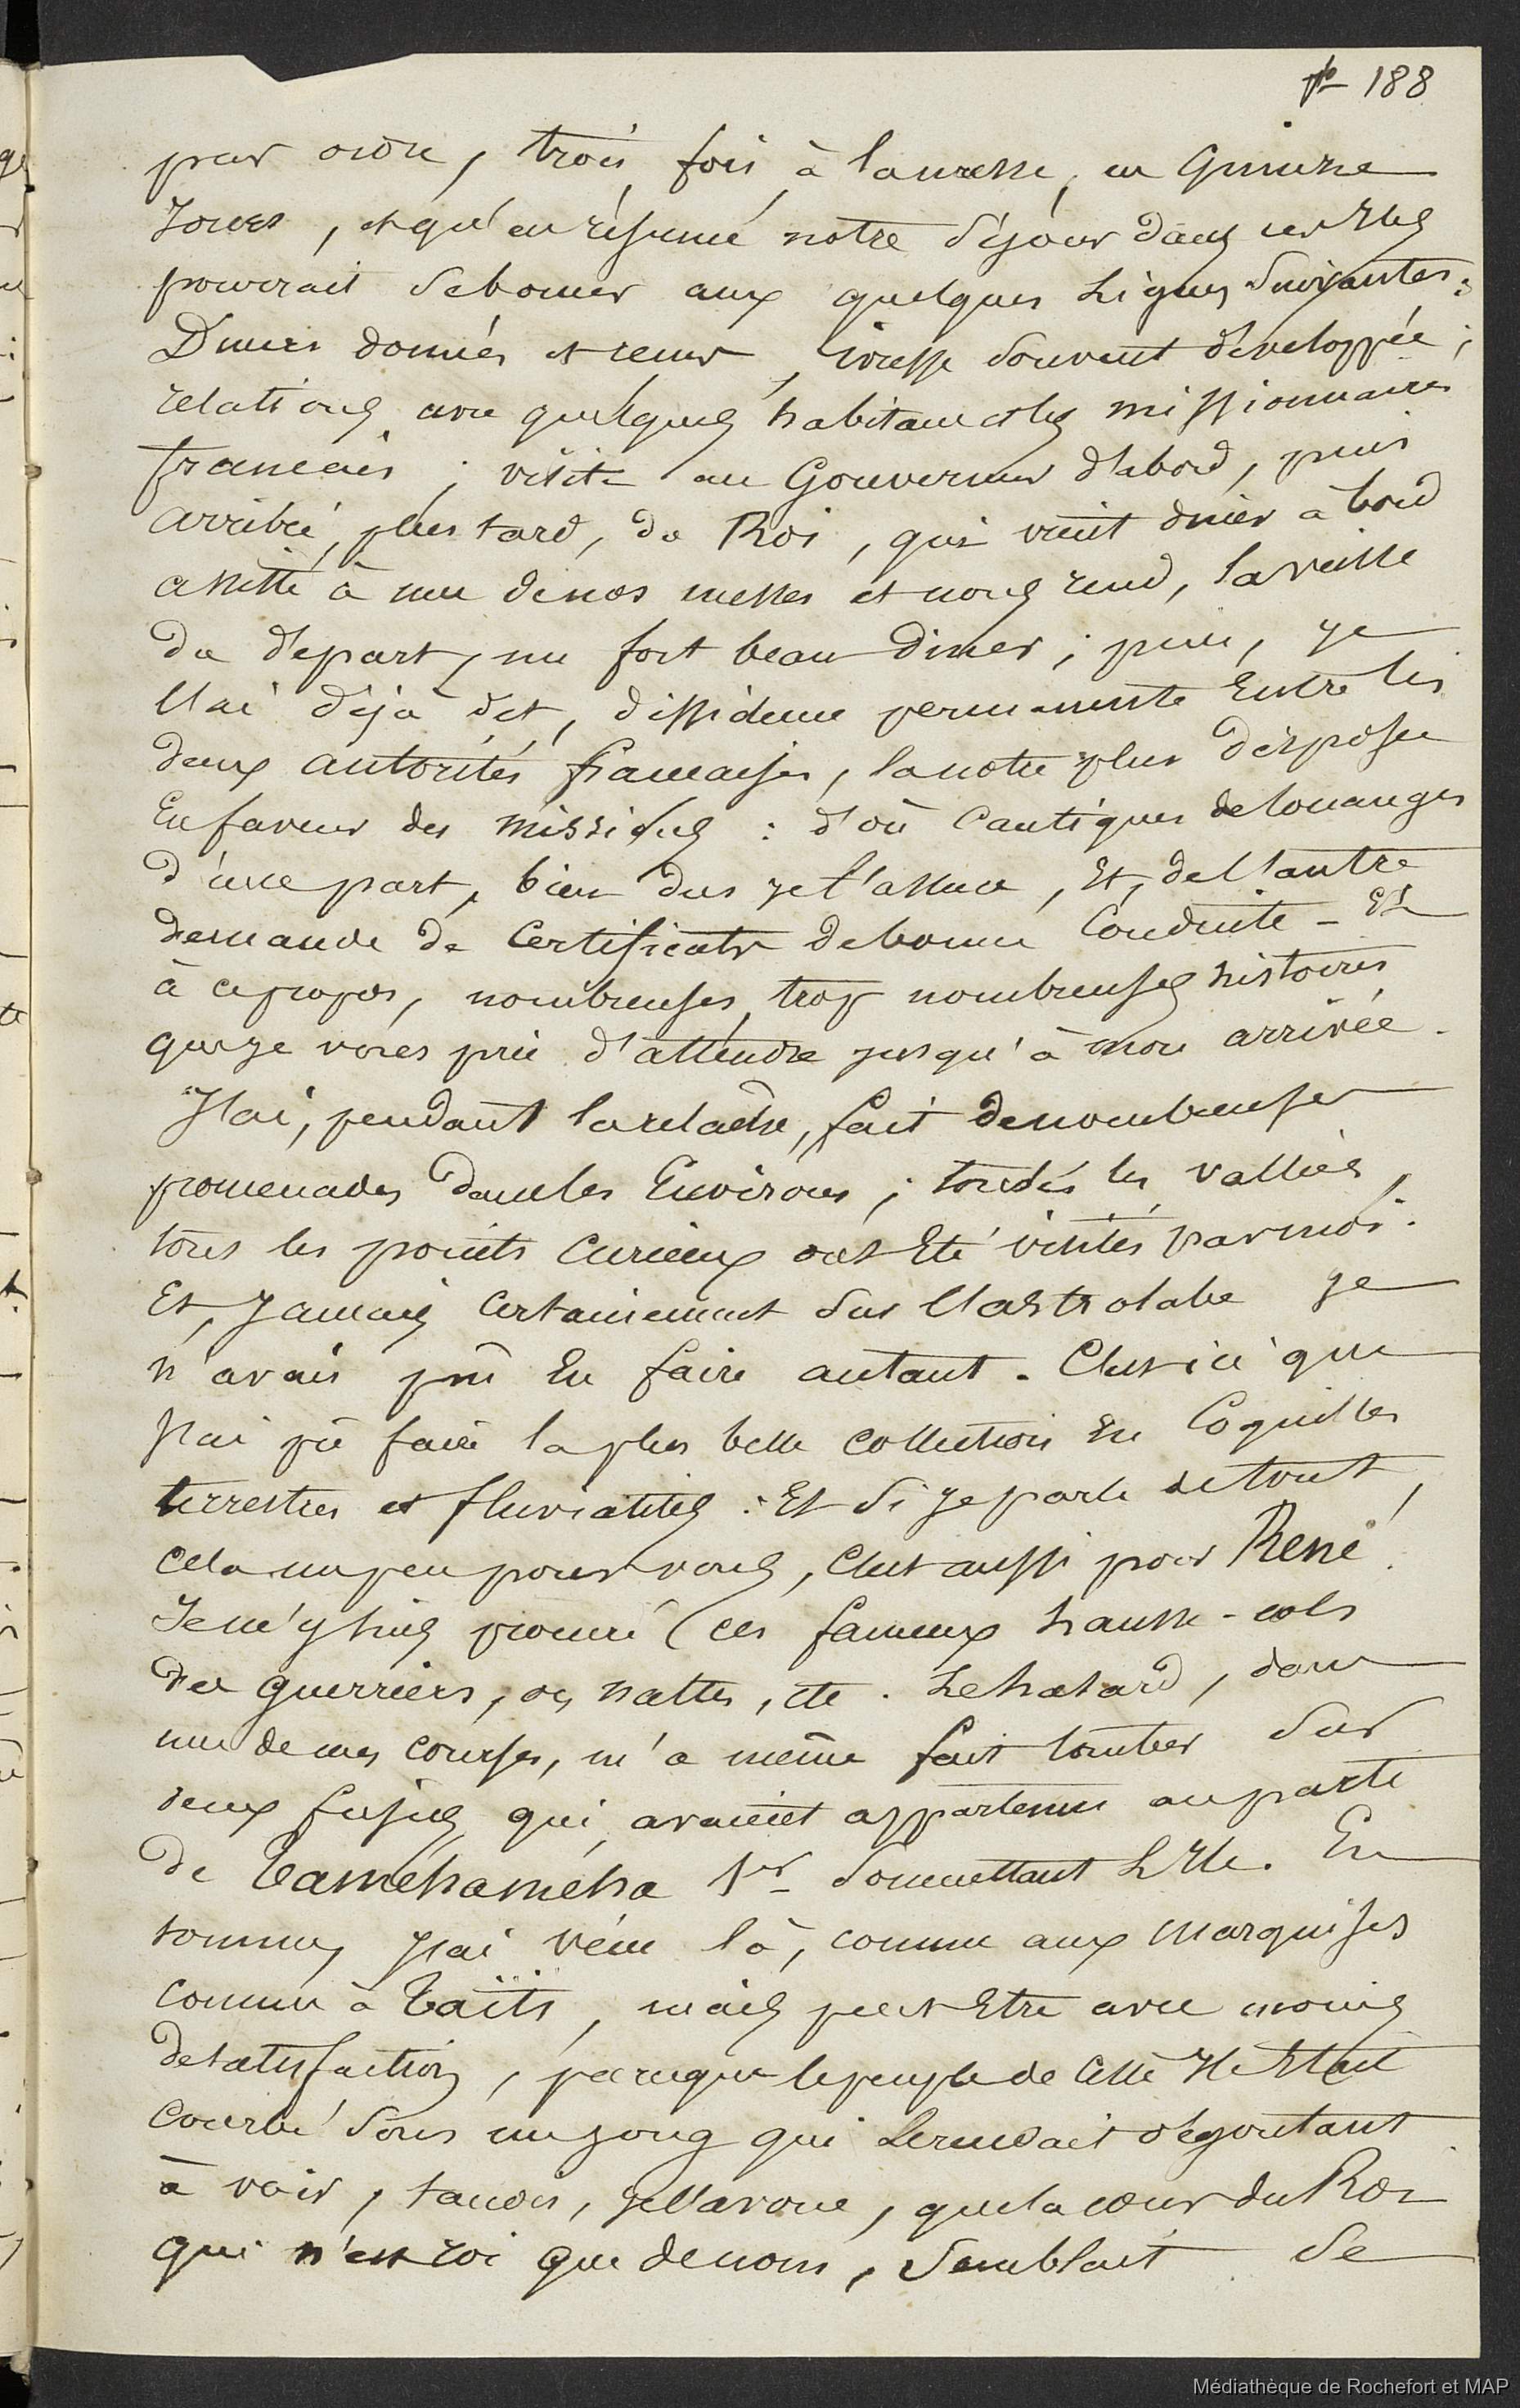 p- 188
par ordre, trois fois à la messe, en Quinze
Jours, et qu'en résumé notre séjour dans ces Iles
pourrait se borner aux quelques Lignes Suivantes :
Diners donnés et rendus, ivresse souvent développée ;
relations avec quelques habitans et les missionnaires
francais ; visite au Gouverneur d'abord, puis
arrivée, plus tard, du Roi, qui vient diner à bord
assiste à une de nos messes et nous rend, la veille
du départ, un fort beau Diner ; puis, je
l'ai déjà dit, dissidence permanente Entre les
deux autorités francaises, la notre plus disposée
En faveur des missions : d'où Cantiques de louanges
d'une part, bien dus je t'assure, Et, de l'autre
demande de Certificats de bonne Conduite - Et
à ce propos, nombreuses, trop nombreuses histoires
que je vous prie d'attendre jusqu'à mon arrivée.
J'ai, pendant la relache, fait de nombreuses
promenades dans les Environs ; toutes les vallées,
tous les points Curieux ont Eté visités par moi.
Et, Jamais Certainement sur l'astrolabe je
n'avais pu En faire autant. C'est ici que
J'ai pû faire la plus belle Collection En Coquilles
terrestres et fluviatiles : Et Si je parle de tout,
cela un peu pour vous, C'est aussi pour René.
Je m'y suis procuré (ces fameux hausse-cols
des guerriers, des nattes, etc. Le hasard, dans
une de mes courses, m'a même fait tomber sur
deux fusils qui avaient appartenu au parti
de Taméhaméha 1er soumettant L'Ile. En
somme, J'ai vécu là, comme aux Marquises
comme à Taïti, mais peut Etre avec moins
de satisfaction, parceque le peuple de Cette Ile Etait
Courbé Sous un joug qui le rendait dégoutant
à voir, tandis, je l'avoue, que la cour du Roi
qui n'est roi que de nom, Semblait Se
Médiathèque de Rochefort et MAP